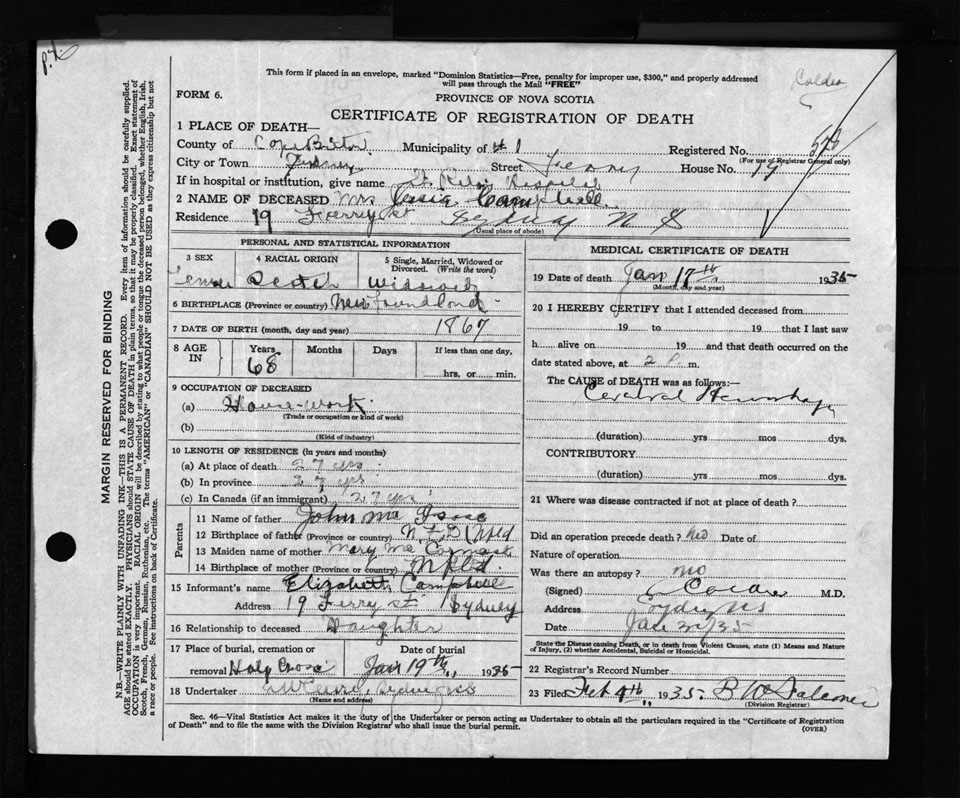 This form if placed in an envelope, marked "Dominion Statistics—Free, penalty for improper use, $300," and properly addressed
will pass through the Mail "FREE"
FORM 6.
PROVINCE OF NOVA SCOTIA
CERTIFICATE OF REGISTRATION OF DEATH
1 PLACE OF DEATH—
County of Cape Breton Municipality of # 1 Registered No. 528
(For use of Registrar General only)
City or Town Sydney Street Ferry House No. 19
If in hospital or institution, give name St. Rita's Hospital
2 NAME OF DECEASED Mrs Campbell
Residence 19 Ferry St Sydney N S
(Usual place of abode)
PERSONAL AND STATISTICAL INFORMATION
3 SEX 4 RACIAL ORIGIN 5 Single, Married, Widowed or Divorced. (Write the word)
Female Scotch Widowed
6 BIRTHPLACE (Province or country) Newfoundland
7 DATE OF BIRTH (month, day and year) 1867
8 AGE IN Years Months Days If less than one day,
68 hrs. or min.
9 OCCUPATION OF DECEASED
(a) House-work
(Trade or occupation or kind of work)
(b)
(Kind of industry)
10 LENGTH OF RESIDENCE (In years and months)
(a) At place of death 27 yrs
(b) In province 27 yrs
(c) In Canada (if an immigrant) 27 yrs
Parents
11 Name of father John Mc Isaac
12 Birthplace of father (Province or country) Nfld
13 Maiden name of mother Mary Mc Cormack
14 Birthplace of mother (Province or country) Nfld.
15 Informant's name Elizabeth Campbell
Address 19 Ferry St Sydney
16 Relationship to deceased Daughter
17 Place of burial, cremation or Date of burial
removal Holy Cross Jan 19th 1935
18 Undertaker Sydney NS
(Name and address)
MEDICAL CERTIFICATE OF DEATH
19 Date of death Jan 17th 1935
(Month, day and year)
20 I HEREBY CERTIFY that I attended deceased from
19 to 19 that I last saw
h alive on 19 and that death occurred on the
date stated above, at 2 P. m.
The CAUSE of DEATH was as follows:—
Cerebral Hemorrhage
(duration) yrs mos dys.
CONTRIBUTORY
(duration) yrs mos dys.
21 Where was disease contracted if not at place of death?
Did an operation precede death? No Date of
Nature of operation
Was there an autopsy? no
(Signed) M.D.
Address Sydney NS
Date Jan 35
State the Disease causing Death, or in death from Violent Causes, state (1) Means and Nature of Injury, (2) whether Accidental, Suicidal or Homicidal.
22 Registrar's Record Number
23 Filed Feb 4th 1935
(Division Registrar)
Sec. 46—Vital Statistics Act makes it the duty of the Undertaker or person acting as Undertaker to obtain all the particulars required in the "Certificate of Registration
of Death" and to file the same with the Division Registrar who shall issue the burial permit.
(OVER)
MARGIN RESERVED FOR BINDING
N.B.—WRITE PLAINLY WITH UNFADING INK—THIS IS A PERMANENT RECORD. Every item of information should be carefully supplied.
AGE should be stated EXACTLY. PHYSICIANS should STATE CAUSE OF DEATH in plain terms, so that it may be properly classified. Exact statement of
OCCUPATION is very important. RACIAL ORIGIN will be described by stating to what people or tongue the deceased person belonged, whether English, Irish,
Scotch, French, German, Russian, Ruthenian, etc. The terms "AMERICAN" or "CANADIAN" SHOULD NOT BE USED as they express citizenship but not
a race or people. See instructions on back of Certificate.